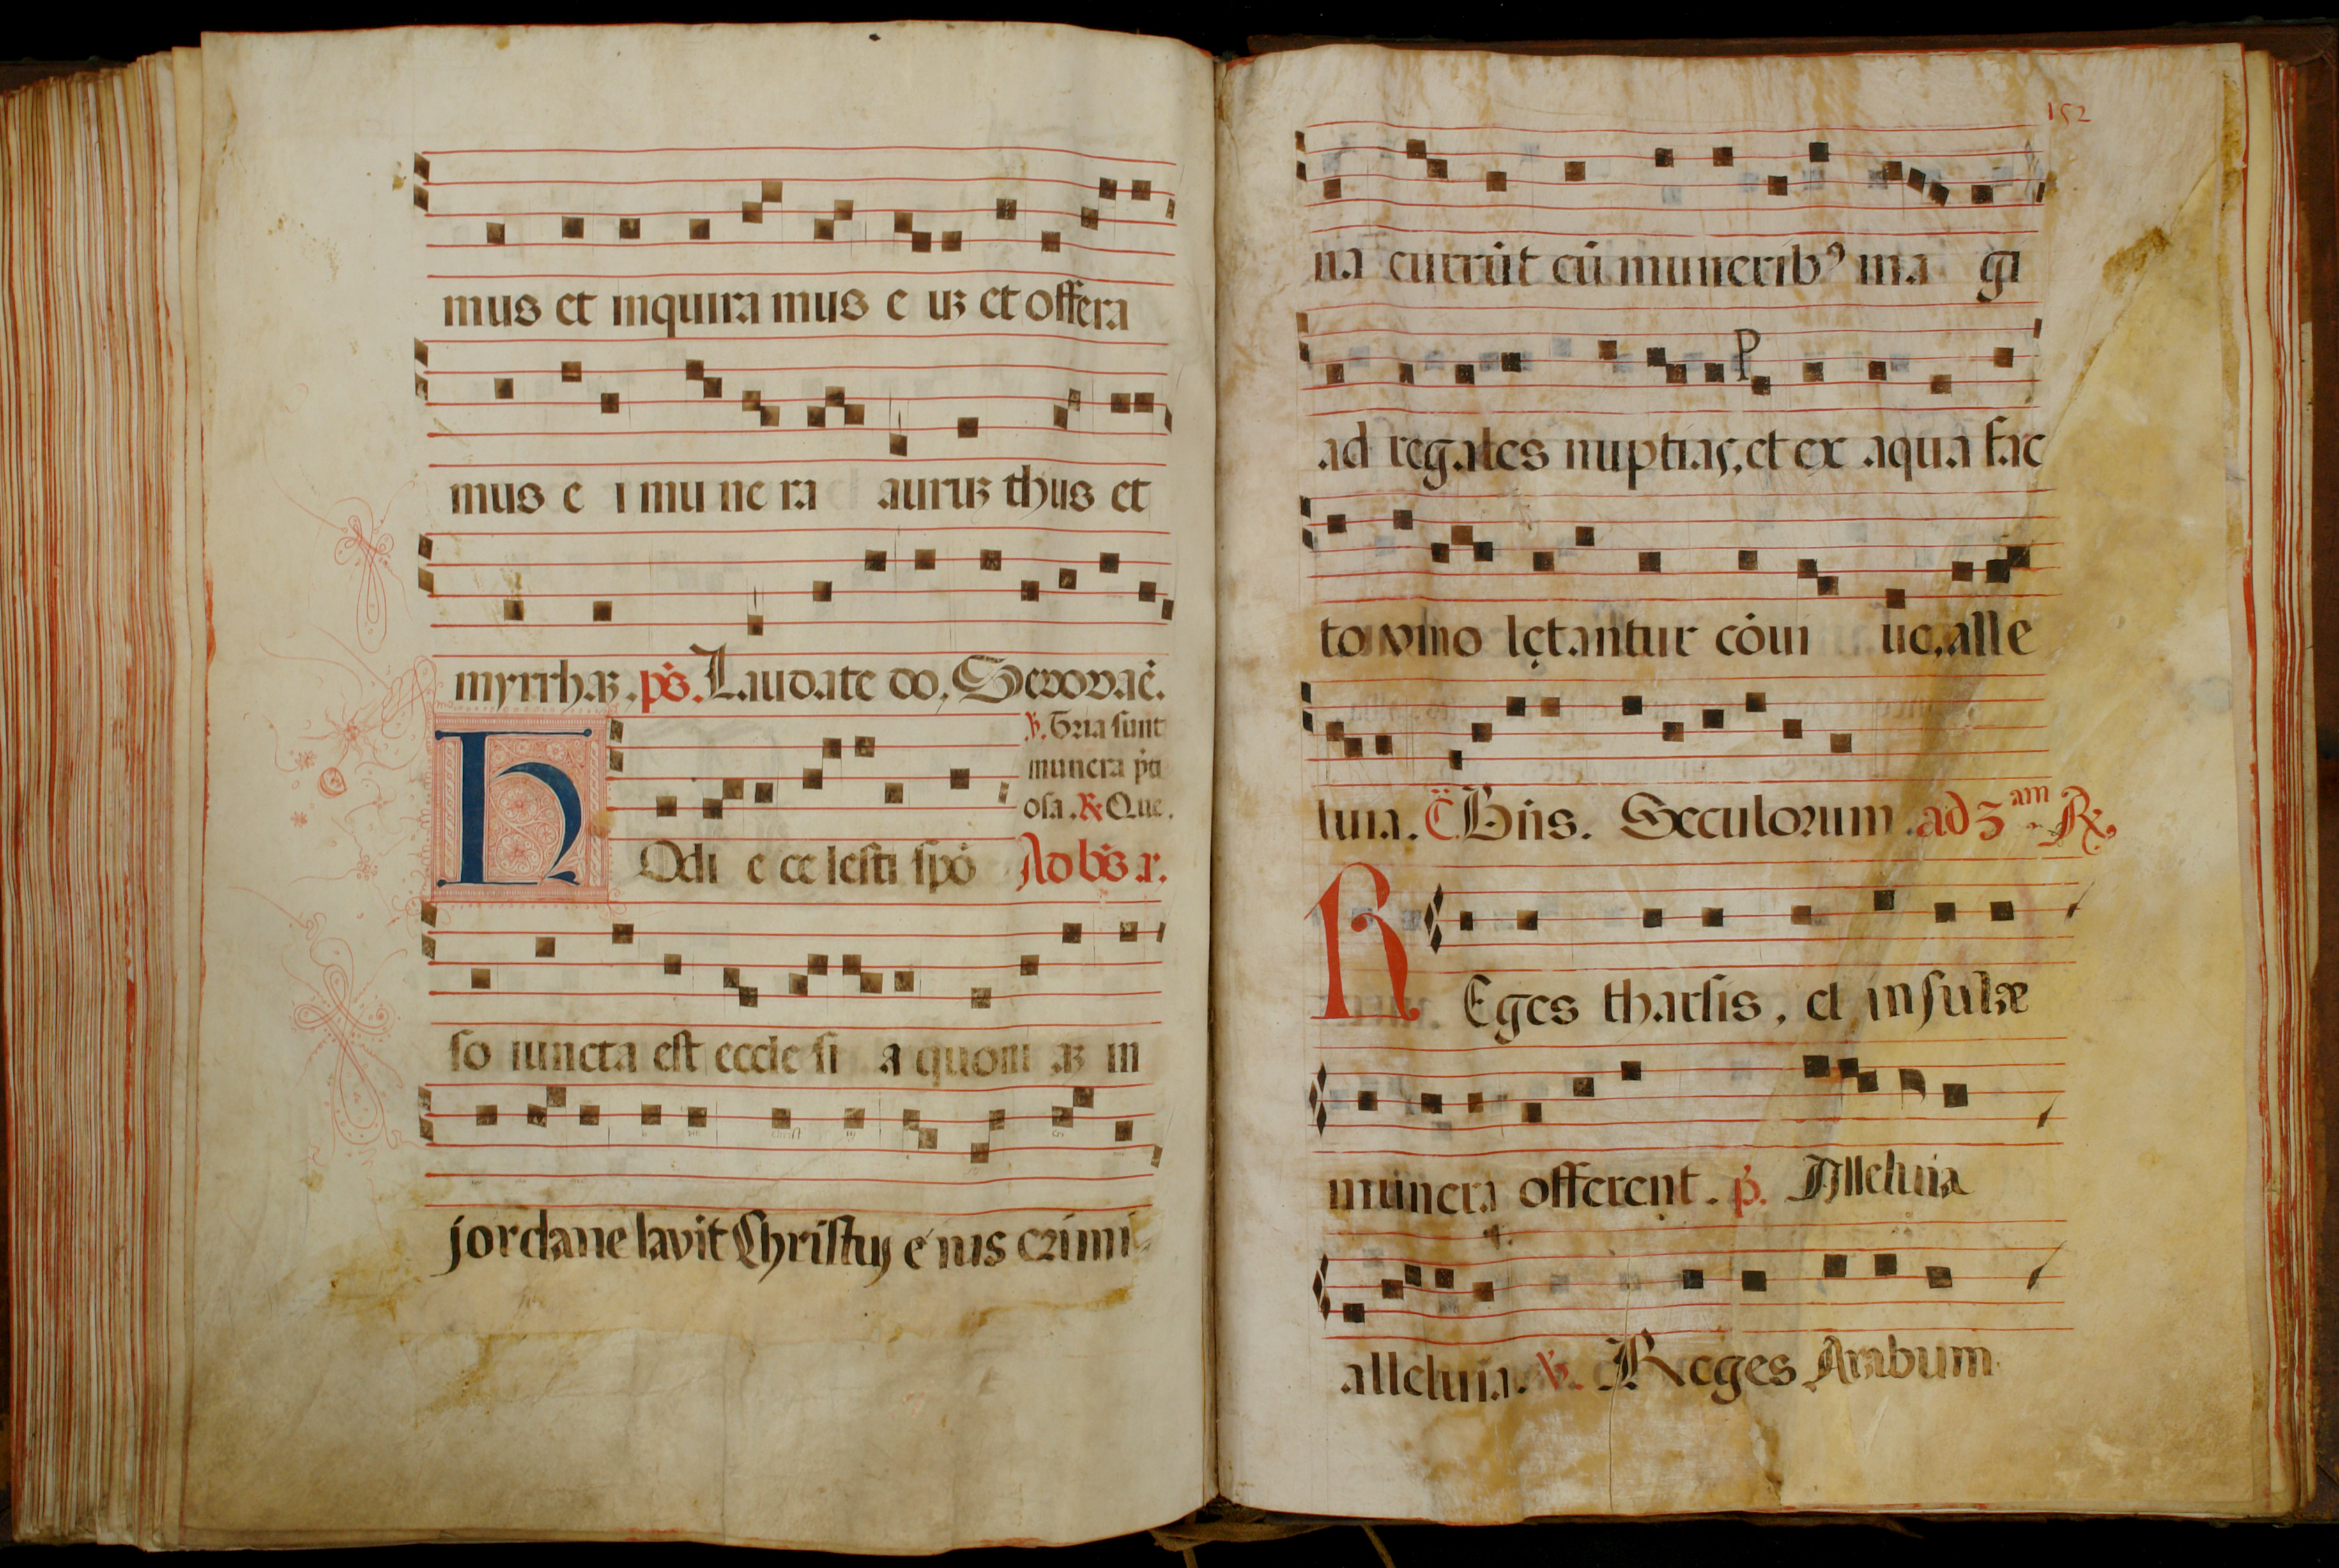 mus et inquira mus e uꝫ et offera
mus e i mu ne ra auruꝫ thus et
myrrhaꝫ. ps. Laudate do, Seuouaē.
℣. Tria sunt
munera p̄ti
osa. ℟ Que.
HOdi e ce lesti spō Ad bn̄s a.
so iuncta est eccle si a quoni aꝫ in
jordane lavit Christus e ius crimi
152
na currūt cū munerib⁹ ma gi
ad regales nuptias, et ex aqua fac
to vino lętantur cōui ue, alle
luia. C̄. Bn̄s. Seculorum. ad 3am ℟
REges tharsis, et insulæ
munera offerent. p̄. Alleluia
alleluia. ℣. Reges Arabum